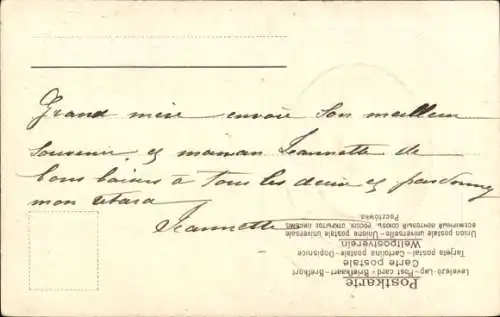 Grand mère envoie son meilleur
souvenir et maman Jeannette de
bons baisers à tous les deux et pardonne
mon retard
Jeannette
Postkarte
Carte postale
Weltpostverein
Levelezö-Lap - Post card - Briefkaart - Brefkort
Tarjeta postal - Cartolina postale - Dopisnice
Union postale universelle - Unione postale universale
ВСЕМІРНЫЙ ПОЧТОВЫЙ СОЮЗЪ РОССІЯ ОТКРЫТОЕ ПИСЬМО
Pocztówka